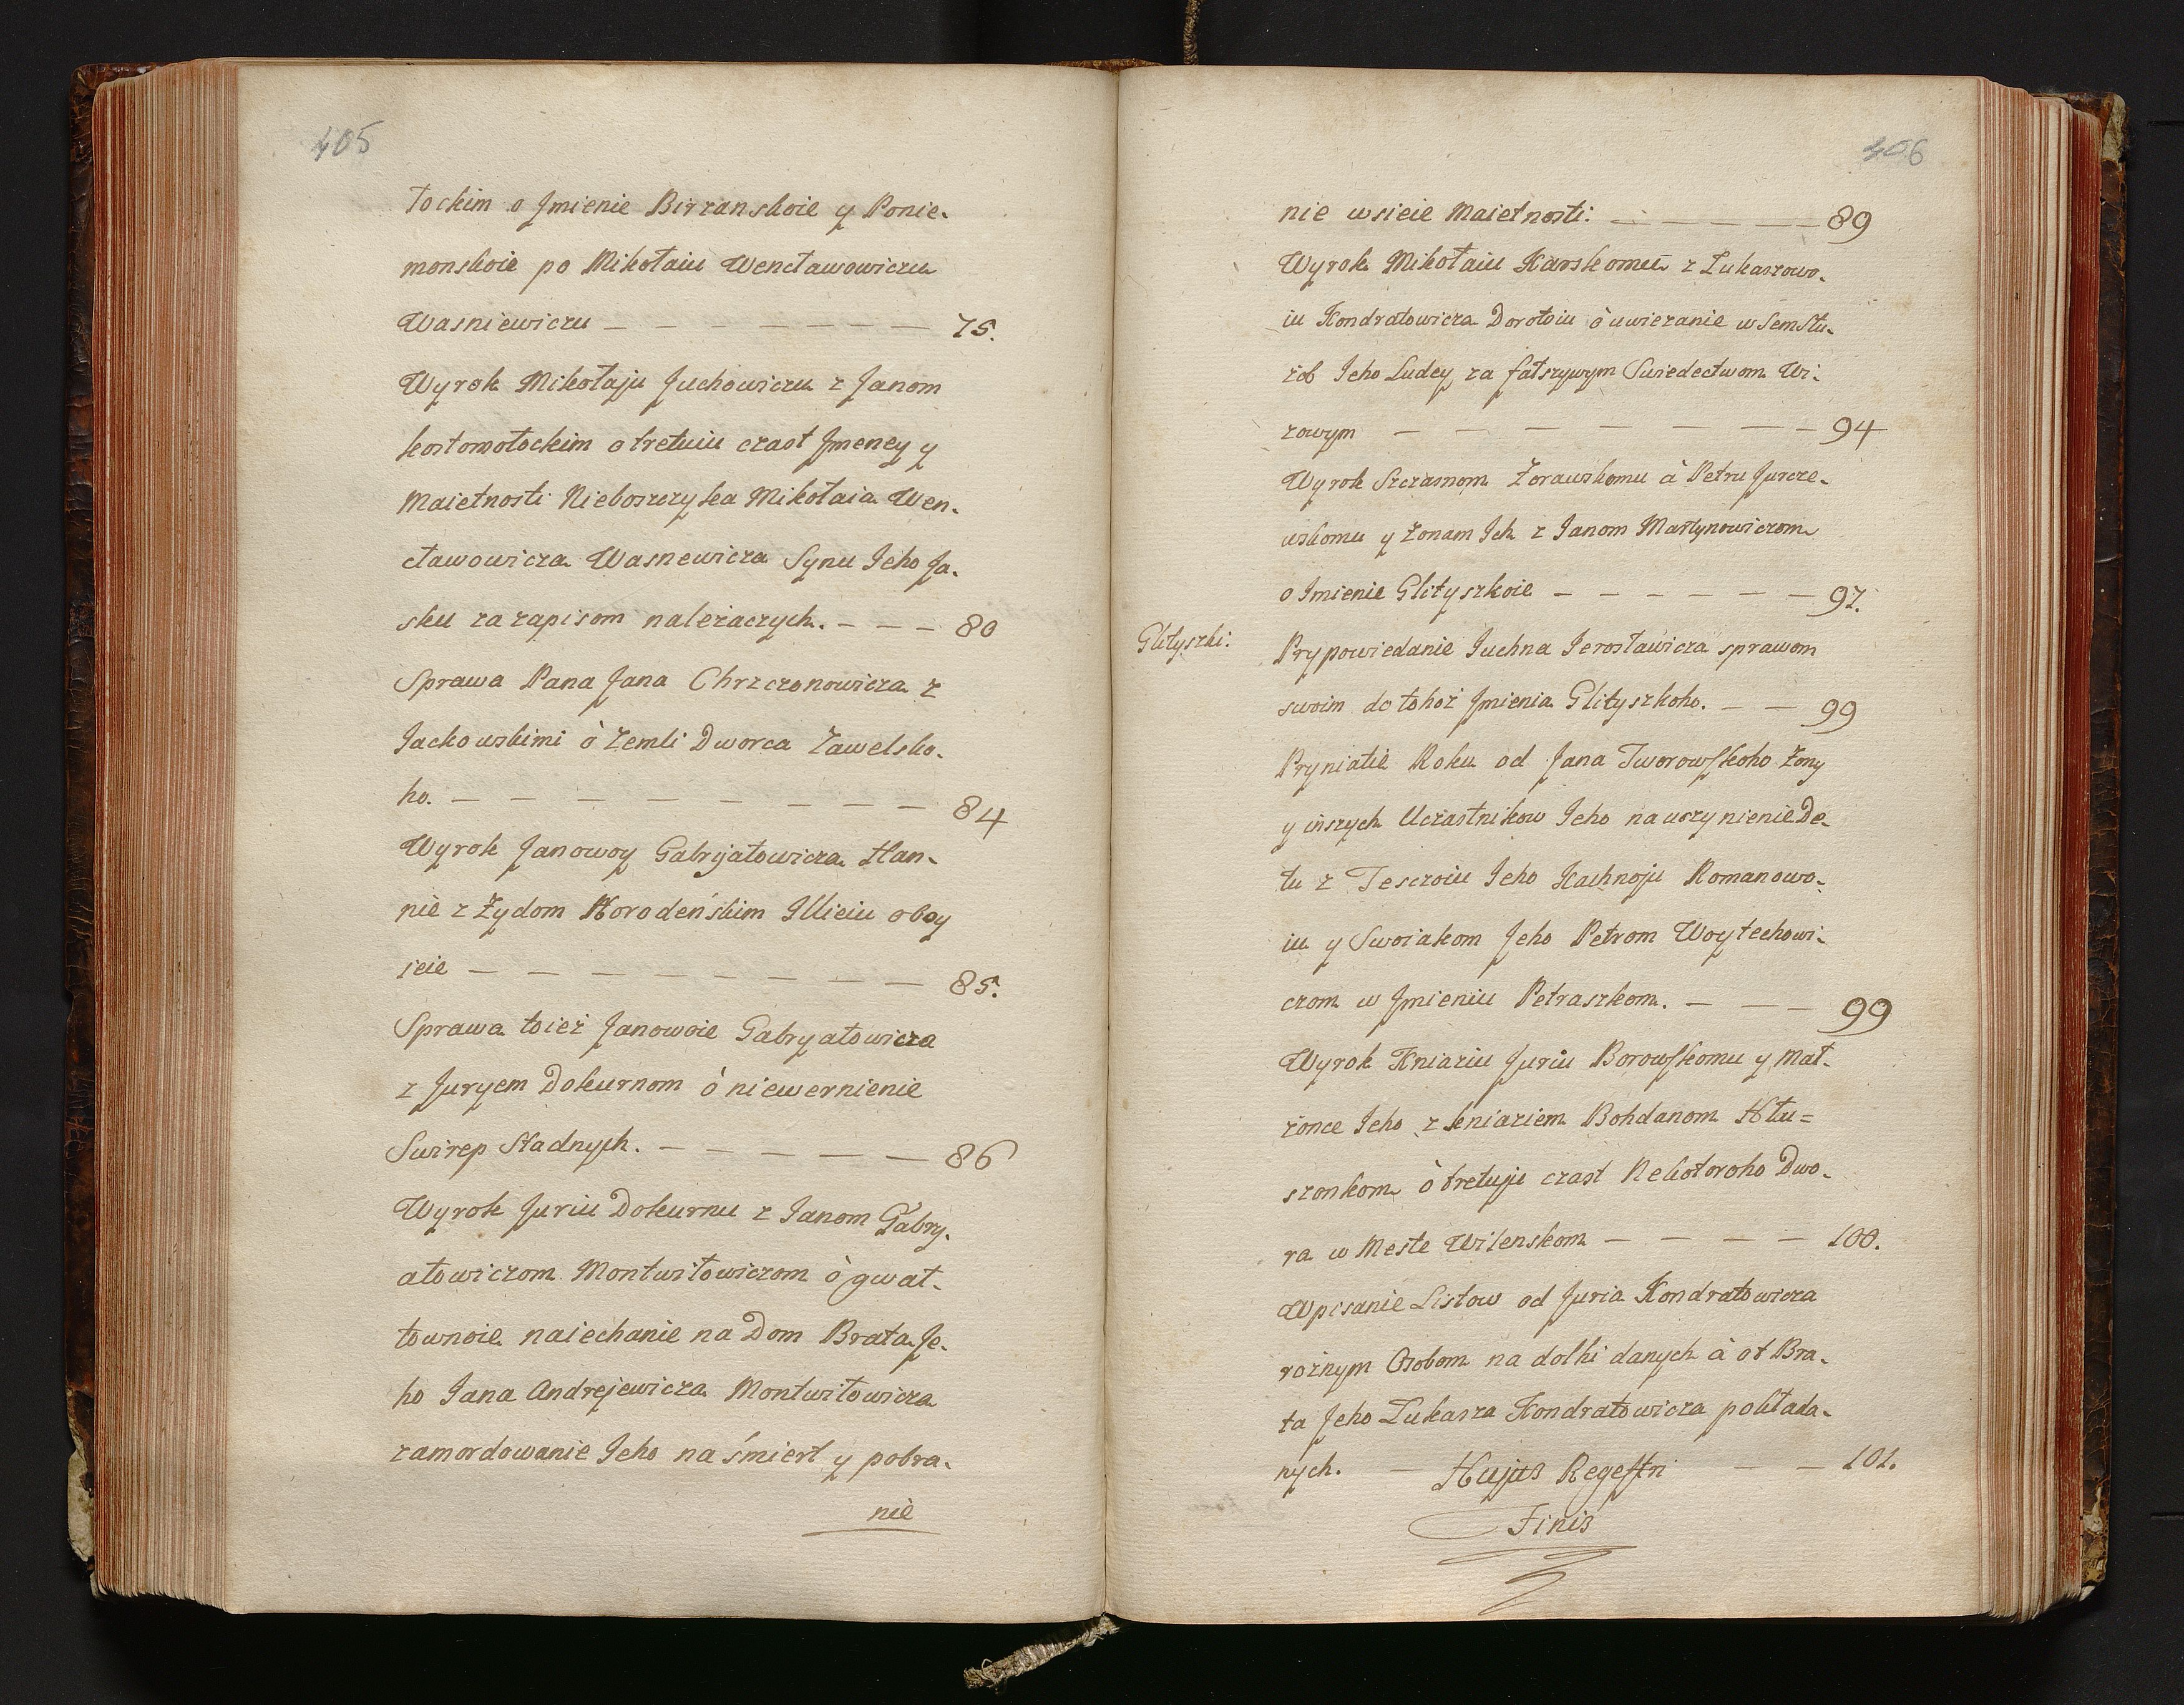 405
tockim o Jmienie Birzanskoie y Ponie-
monskoie po Mikołaiu Wencławowiczu
Wasniewiczu — — — — — — — — 75.
Wyrok Mikołaju Juchowiczu z Janom
kostomołockim o tretuiu czast Jmeney y
Maietnosti Nieboszczyka Mikołaia Wen-
cławowicza Wasnewicza Synu Jeho Ja-
sku za zapisom należaczych. — — — 80
Sprawa Pana Jana Chrzczonowicza z
Jackowskimi ò Zemli Dworca Zawelsko-
ho. — — — — — — — — 84
Wyrok Janowoy Gabryałowicza Han-
nie z Żydom Horodeńskim Illieiu oboy
scie — — — — — — — — 85.
Sprawa toież Janowoie Gabryałowicza
z Juryem Dokurnom ò niewernienie
Swirep Stadnych. — — — — — 86
Wyrok Juriu Dokurnu z Janom Gabry-
ałowiczom Montwiłowiczom ò gwał-
townoie naiechanie na Dom Brata Je-
ho Jana Andrejewicza Montwiłowicza
zamordowanie Jeho na śmiert y pobra-
nie
406
nie wsieie Maietnosti. — — — — — 89
Wyrok Mikołaiu Karskomu z Łukaszowo-
iu Kondratowicza Dorotoiu ò uwiezanie w Sem Słu-
żob Jeho Ludey za fałszywym Swiedectwom Wi-
zowym — — — — — — — 94
Wyrok Szczasnom Żorawskomu à Petru Jurcze-
wskomu y Żonam Jch z Janom Martynowiczom
o Jmienie Glityszkoie — — — — — — 97.
Glityszki:
Prypowiedanie Juchna Jerosławicza sprawom
swoim do tohoż Jmienia Glityszkoho. — — 99
Pryniatie Roku od Jana Tworowskoho Żony
y inszych Uczastnikow Jeho na uczynienie De-
łu z Teszczoiu Jeho Kachnoju Romanowo-
iu y Swoiakom Jeho Petrom Woytechowi-
czom w Jmieniu Petraszkom. — — — 99
Wyrok Kniaziu Juriu Borowskomu y Mał-
żonce Jeho z kniaziem Bohdanom Hłu=
szonkom ò tretuju czast Nekotoroho Dwo-
ra w Meste Wilenskom — — — — 100.
Wpisanie Listow od Juria Kondratowicza
rożnym Osobom na dolhi danych à ot Bra-
ta Jeho Łukasza Kondratowicza pokłada-
nych. — Hujus Regestri — — 101.
Finis